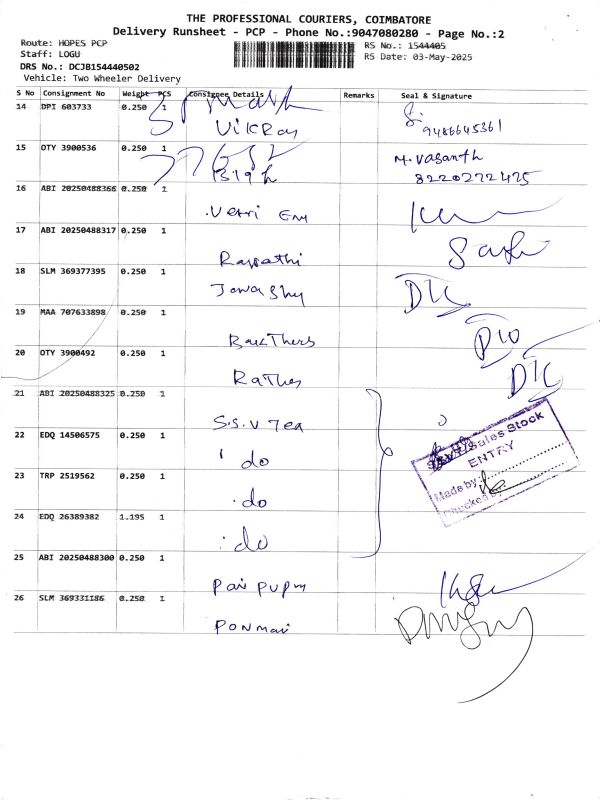 THE PROFESSIONAL COURIERS, COIMBATORE
Delivery Runsheet - PCP - Phone No.:9047080280 - Page No.:2
Route: HOPES PCP
RS No.: 1544405
Staff: LOGU
RS Date: 03-May-2025
DRS No.: DCJB154440502
Vehicle: Two Wheeler Delivery
S No Consignment No Weight PCS Consignee Details Remarks Seal & Signature
14 DPI 603733 0.250 1
Vikram
9486645361
15 OTY 3900536 0.250 1
M. Vasanth
8220272475
16 ABI 20250488366 0.250 1
Vetri Em
17 ABI 20250488317 0.250 1
Rajpathi
18 SLM 369377395 0.250 1
19 MAA 707633898 0.250 1
20 OTY 3900492 0.250 1
21 ABI 20250488325 0.250 1
S.S.V Tea
22 EDQ 14506575 0.250 1
do
23 TRP 2519562 0.250 1
do
24 EDQ 26389382 1.195 1
do
Sales Stock
ENTRY
Made by:
Checked by
25 ABI 20250488300 0.250 1
26 SLM 369331186 0.250 1
Ponmari